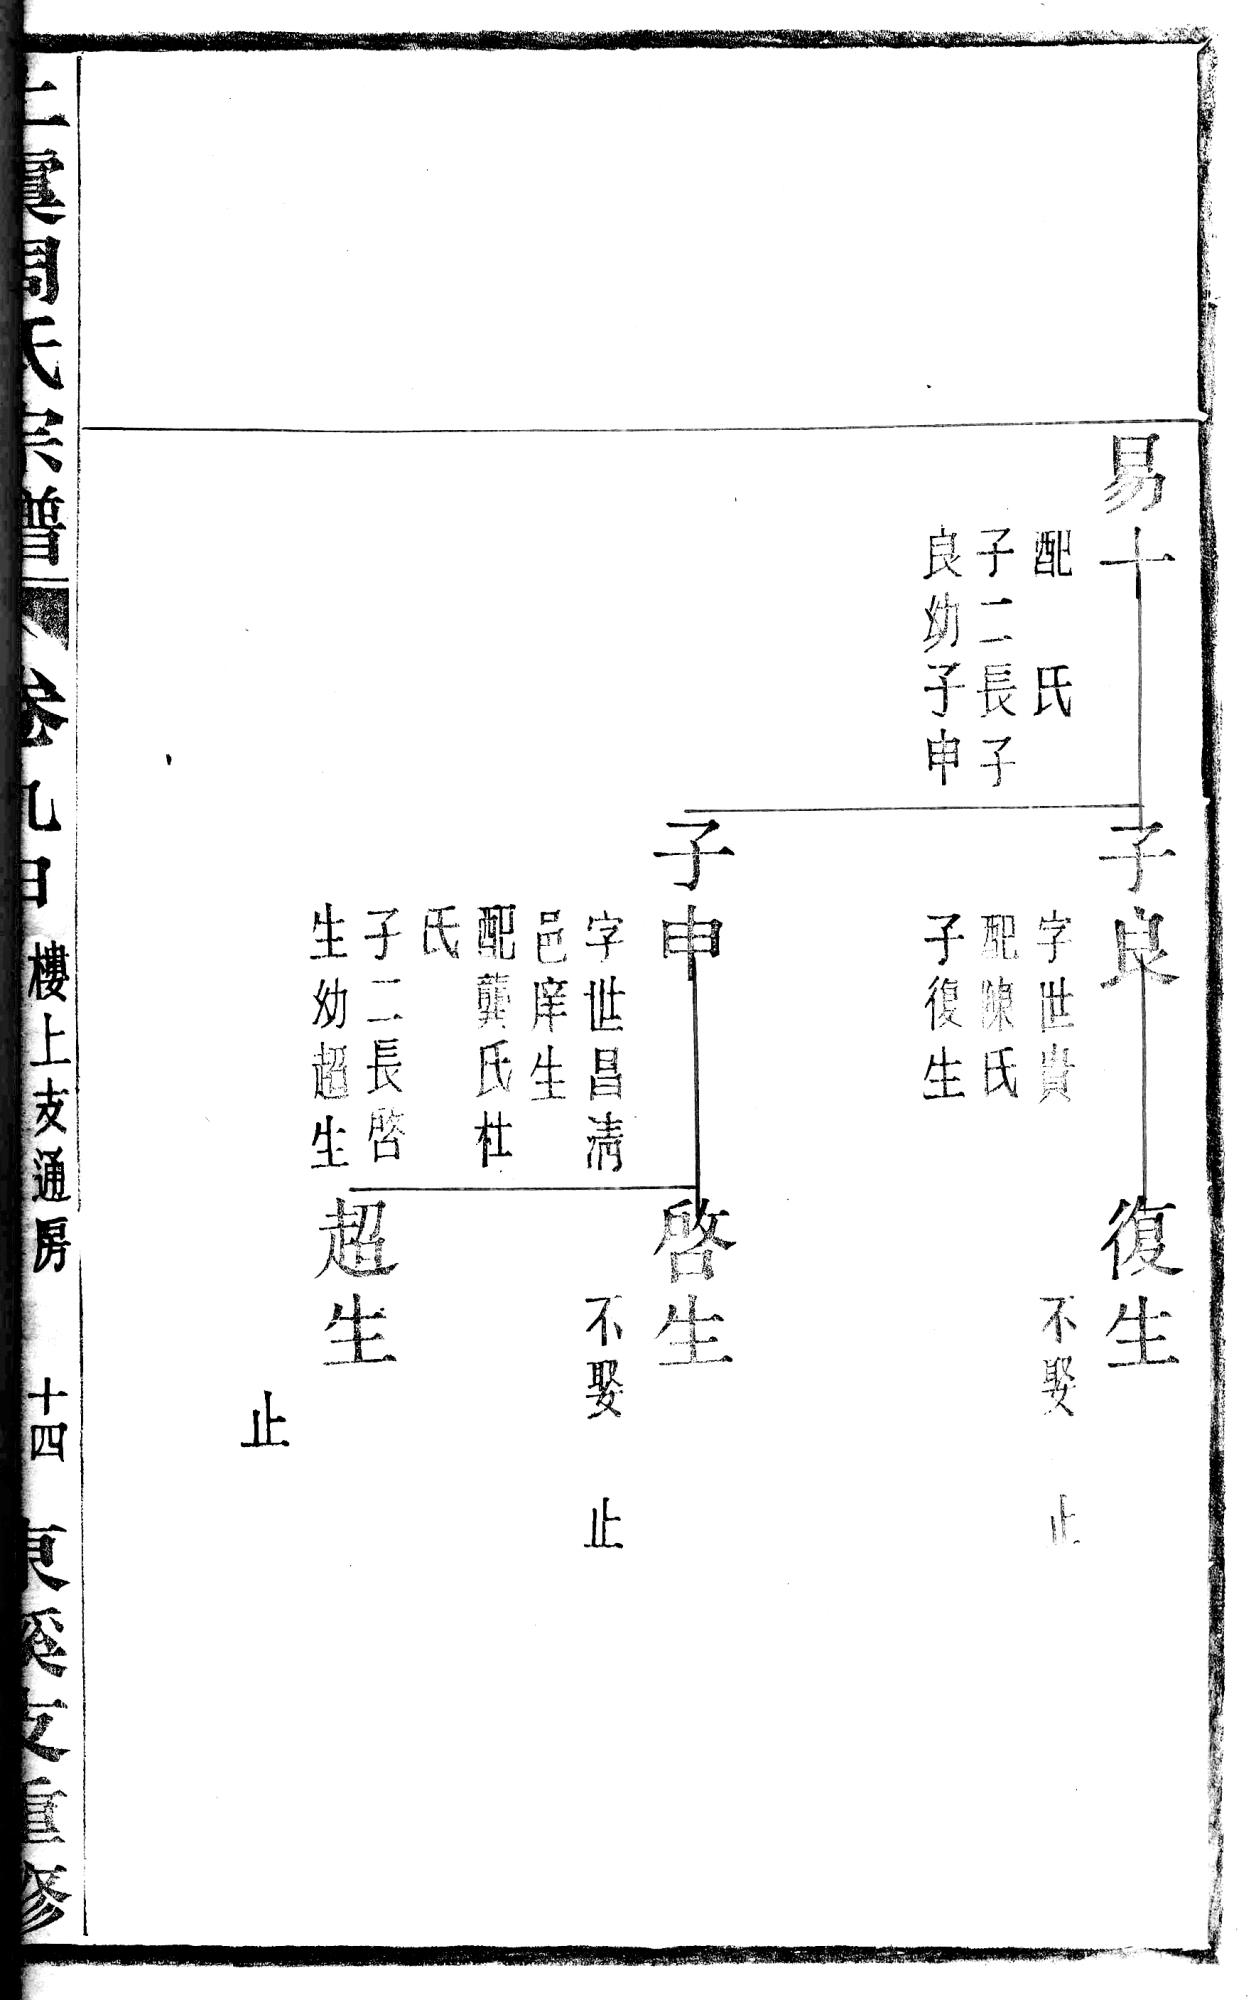 易十
配　氏
子二長子
良幼子申
子良
字世貴
配陳氏
子復生
復生
不娶　止
子申
字世昌清
邑庠生
配龔氏杜
氏
子二長啓
生幼超生
啓生
不娶　止
超生
止
上虞周氏宗譜
卷九
樓上支通房
十四
東溪支重修